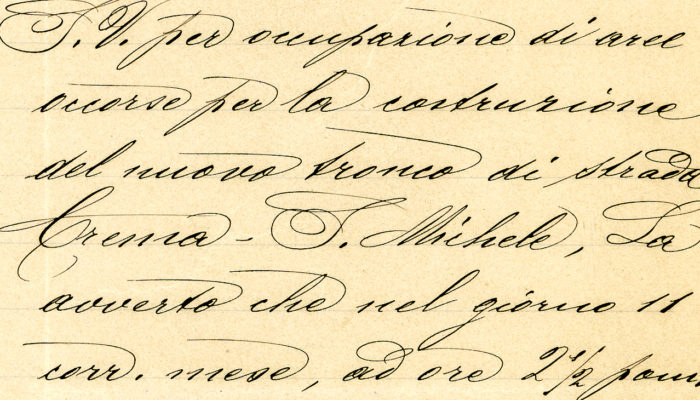 S. V. per occupazione di aree
occorse per la costruzione
del nuovo tronco di strada
Crema - S. Michele, La
avverto che nel giorno 11
corr. mese, ad ore 2 1/2 pom.